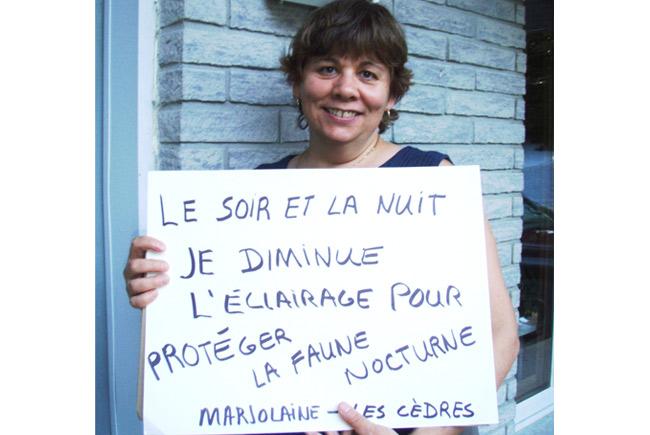 LE SOIR ET LA NUIT
JE DIMINUE
L'ÉCLAIRAGE POUR
PROTÉGER LA FAUNE NOCTURNE
MARJOLAINE - LES CÈDRES